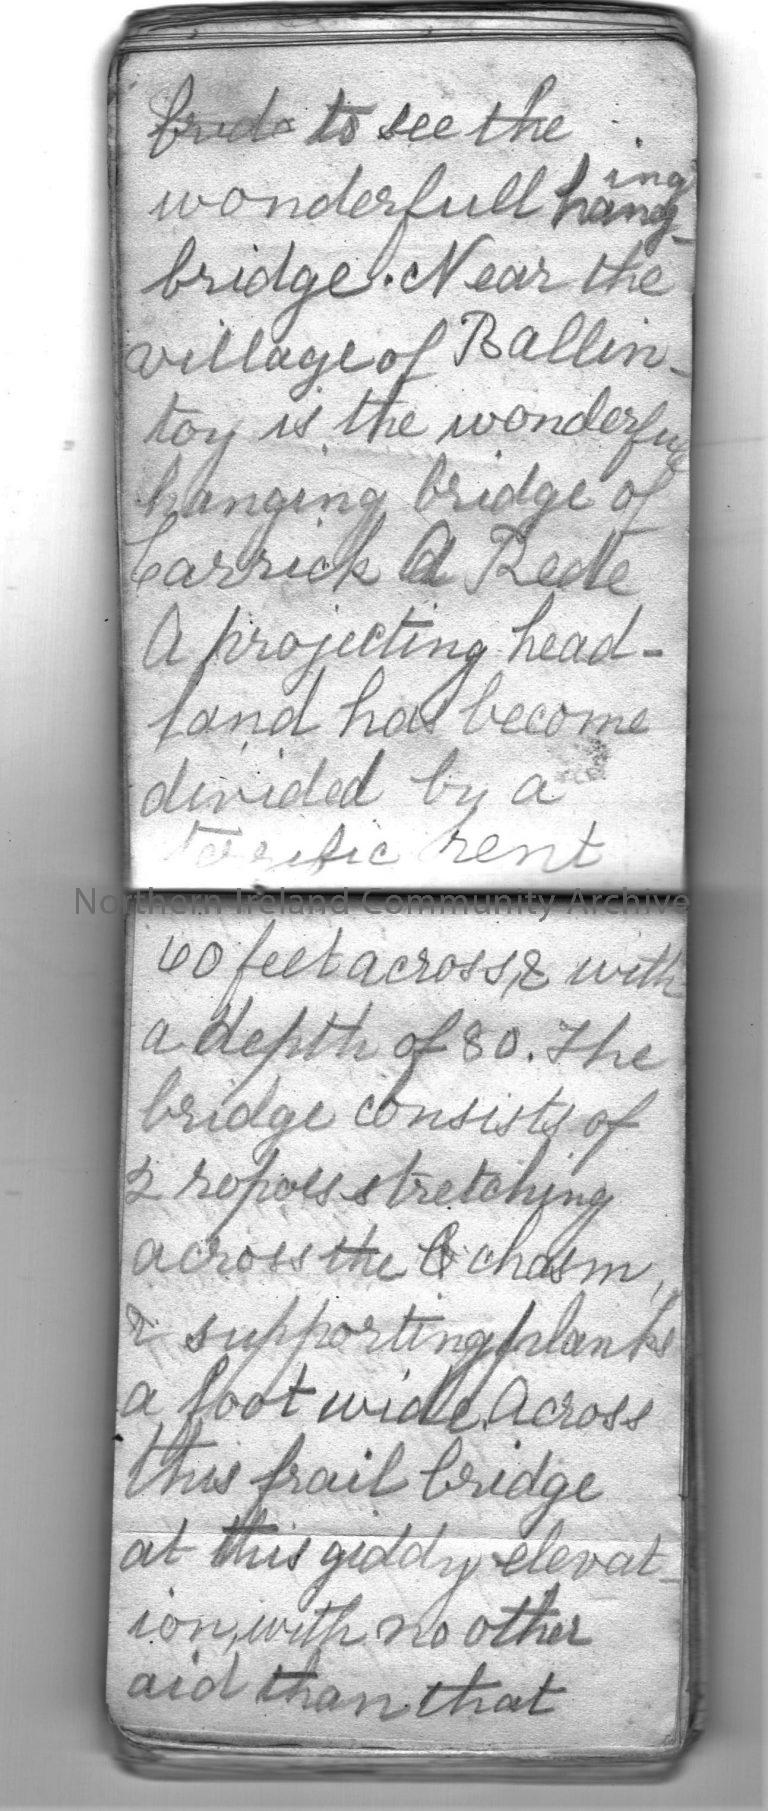 to see the
wonderfull hanging
bridge. Near the
village of Ballin-
toy is the wonderful
hanging bridge of
Carrick A Rede
A projecting head-
land has become
divided by a
terrific rent
Northern Ireland Community Archive
60 feet across, & with
a depth of 80. The
bridge consists of
2 ropes stretching
across the chasm,
& supporting planks
a foot wide. Across
this frail bridge
at this giddy elevat-
ion, with no other
aid than that